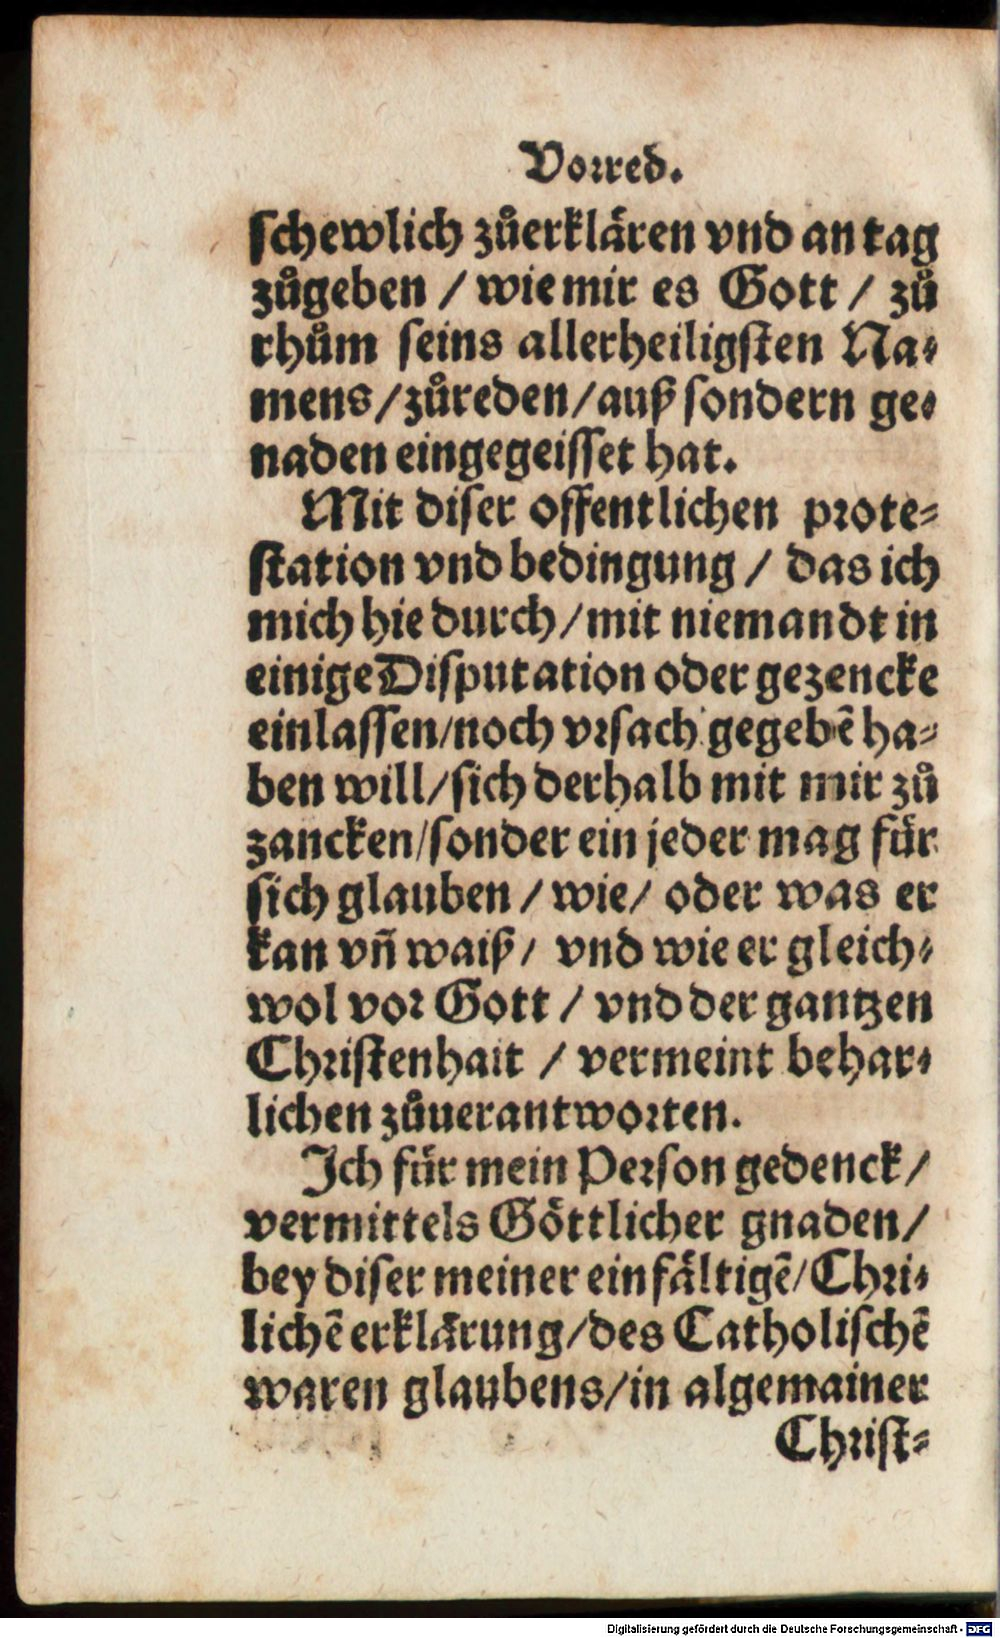 Vorred.
schewlich zůerklären vnd an tag
zůgeben / wie mir es Gott / zů
rhům seins allerheiligsten Na-
mens / zůreden / auß sondern ge-
naden eingegeisset hat.
Mit diser offentlichen prote-
station vnd bedingung / das ich
mich hie durch / mit niemandt in
einige Disputation oder gezencke
einlassen / noch vrsach gegebē ha-
ben will / sich derhalb mit mir zů
zancken / sonder ein jeder mag für
sich glauben / wie / oder was er
kan vñ waiß / vnd wie er gleich-
wol vor Gott / vnd der gantzen
Christenhait / vermeint behar-
lichen zůuerantworten.
Ich für mein Person gedenck /
vermittels Göttlicher gnaden /
bey diser meiner einfältigē / Chri-
lichē erklärung / des Catholischē
waren glaubens / in algemainer
Christ-
Digitalisierung gefördert durch die Deutsche Forschungsgemeinschaft - DFG